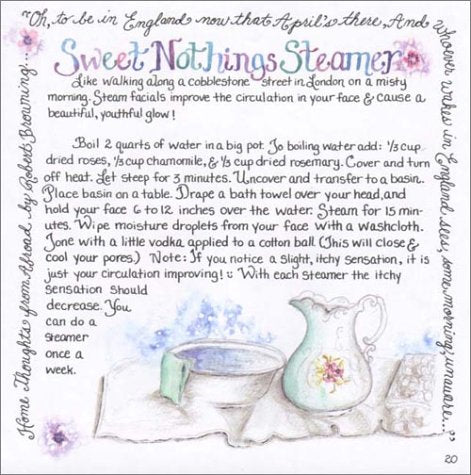 "Oh, to be in England now that April's there, And
whoever wakes in England sees, some morning, unaware..."
Home Thoughts from Abroad by Robert Browning...
Sweet Nothings Steamer
Like walking along a cobblestone street in London on a misty
morning. Steam facials improve the circulation in your face & cause a
beautiful, youthful glow!
Boil 2 quarts of water in a big pot. To boiling water add: 1/3 cup
dried roses, 1/3 cup chamomile, & 1/3 cup dried rosemary. Cover and turn
off heat. Let steep for 3 minutes. Uncover and transfer to a basin.
Place basin on a table. Drape a bath towel over your head, and
hold your face 6 to 12 inches over the water. Steam for 15 min-
utes. Wipe moisture droplets from your face with a washcloth.
Tone with a little vodka applied to a cotton ball. (This will close &
cool your pores.) Note: If you notice a slight, itchy sensation, it is
just your circulation improving! :) With each steamer the itchy
sensation should
decrease. You
can do a
steamer
once a
week.
20